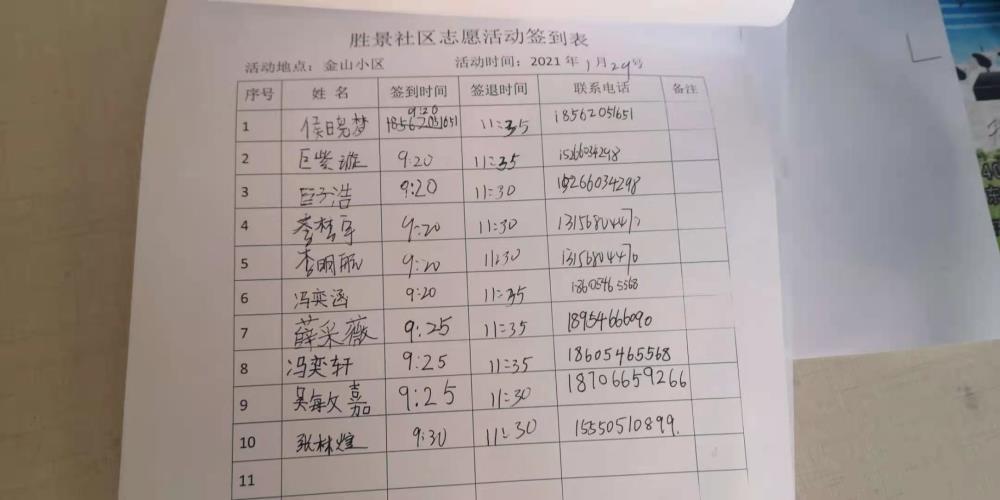 胜景社区志愿活动签到表
活动地点：金山小区 活动时间：2021 年 1月29号
序号 姓 名 签到时间 签退时间 联系电话 备注
1 侯晓梦 9:20 18562051651 11:35 18562051651
2 巨紫漩 9:20 11:35 15266034298
3 巨子浩 9:20 11:30 15266034298
4 9:20 11:30 13156804470
5 李明航 9:20 11:30 13156804470
6 冯奕涵 9:20 11:35 18605465568
7 薛采薇 9:25 11:35 18954666090
8 冯奕轩 9:25 11:35 18605465568
9 吴敏嘉 9:25 11:30 18706659266
10 张林煊 9:30 11:30 15550510899.
11